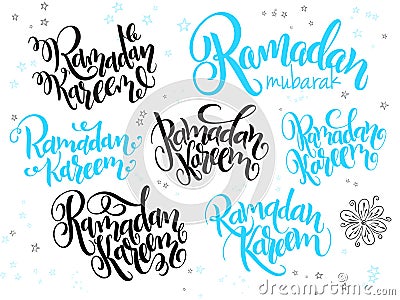 Ramadan
Kareem
Ramadan
mubarak
Ramadan
Kareem
Ramadan
Kareem
Ramadan
Kareem
Ramadan
Kareem
Ramadan
Kareem